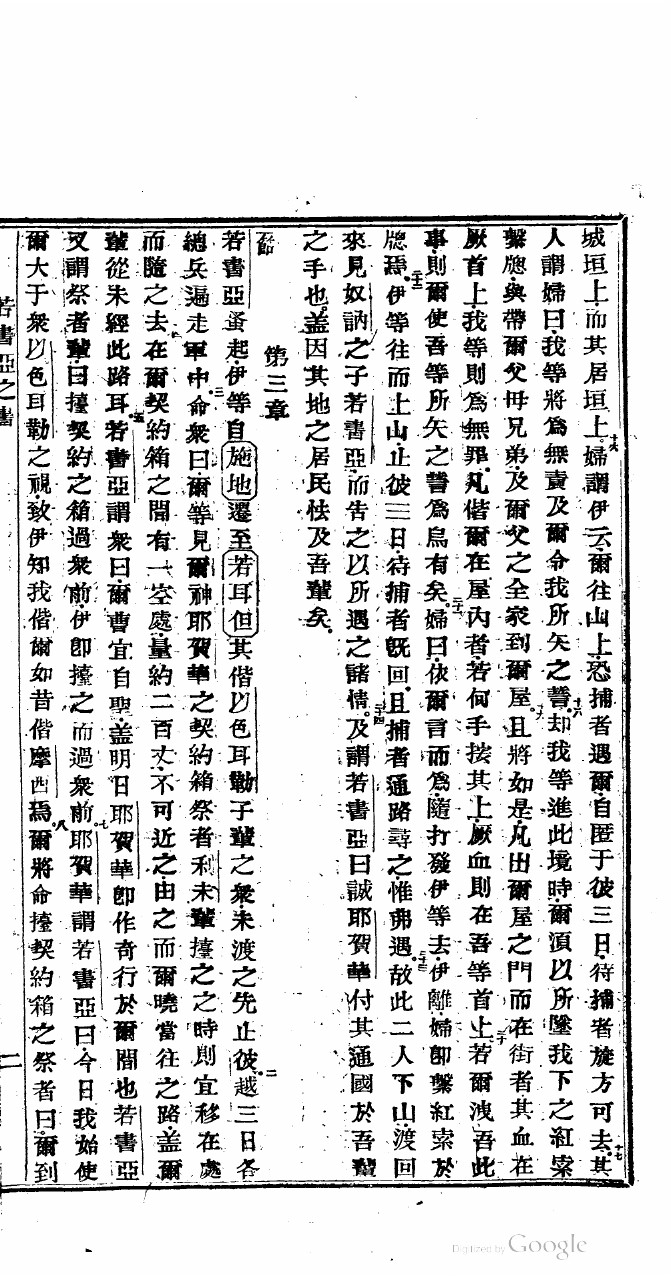 城垣上而其居垣上十六婦謂伊云爾往山上恐捕者遇爾自匿于彼三日待捕者旋方可去十七其
人謂婦曰我等將爲無責及爾令我所矢之誓十八却我等進此境時爾須以所墜我下之紅索
繫牕與帶爾父母兄弟及爾父之全家到爾屋十九且將如是凡出爾屋之門而在街者其血在
厥首上我等則爲無罪凡偕爾在屋內者若何手按其上厥血則在吾等首上二十若爾洩吾此
事則爾使吾等所矢之誓爲烏有矣二十一婦曰依爾言而爲隨打發伊等去伊離婦卽繫紅索於
牕焉二十二伊等往而上山止彼三日待捕者旣回且捕者通路尋之惟弗遇二十三故此二人下山渡回
來見奴訥之子若書亞而告之以所遇之諸情二十四及謂若書亞曰誠耶賀華付其通國於吾輩
之手也蓋因其地之居民怯及吾輩矣
第三章
一節
若書亞蚤起伊等自施地遷至若耳但其偕以色耳勒子輩之衆未渡之先止彼二越三日各
總兵遍走軍中三命衆曰爾等見爾神耶賀華之契約箱祭者利未輩擡之之時則宜移在處
而隨之去四在爾契約箱之間有一空處量約二百丈不可近之由之而爾曉當往之路蓋爾
輩從未經此路耳五若書亞謂衆曰爾曹宜自聖蓋明日耶賀華卽作奇行於爾間也六若書亞
又謂祭者輩曰擡契約之箱過衆前伊卽擡之而過衆前七耶賀華謂若書亞曰今日我始使
爾大于衆以色耳勒之視致伊知我偕爾如昔偕摩西焉八爾將命擡契約箱之祭者曰爾到
若書亞之書
二
Digitized by Google